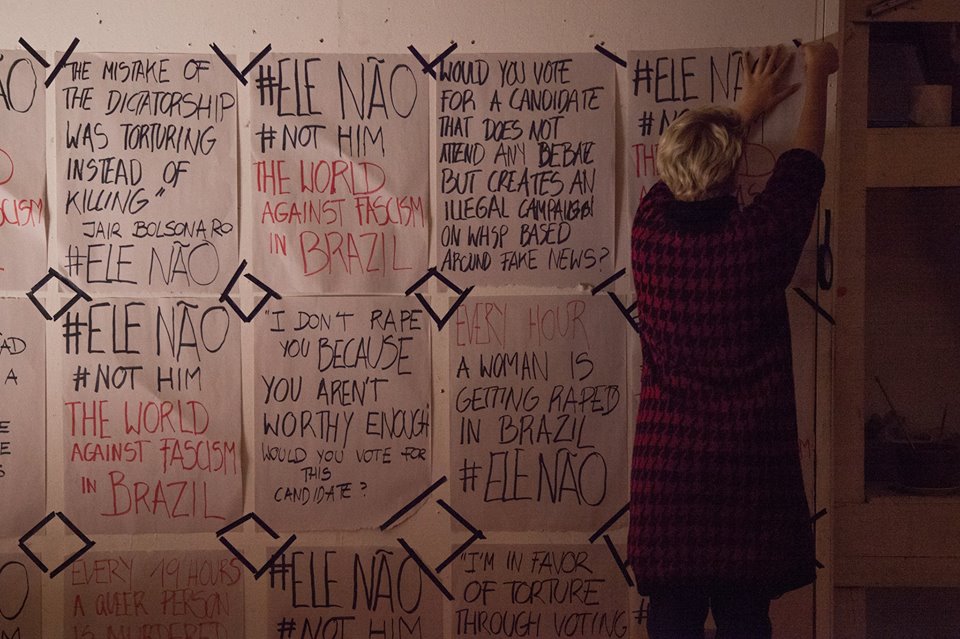 ÃO
SCISM
"THE MISTAKE OF
THE DICTATORSHIP
WAS TORTURING
INSTEAD OF
KILLING"
JAIR BOLSONARO
#ELE NÃO
#ELE NÃO
#NOT HIM
THE WORLD
AGAINST FASCISM
IN BRAZIL
WOULD YOU VOTE
FOR A CANDIDATE
THAT DOES NOT
ATTEND ANY BEBATE
BUT CREATES AN
ILLEGAL
ON WHSP BASED
AROUND FAKE NEWS?
#ELE NÃ
#ELE NÃO
#NOT HIM
THE WORLD
AGAINST FASCISM
IN BRAZIL
"I DON'T RAPE
YOU BECAUSE
YOU AREN'T
WORTHY ENOUGH
WOULD YOU VOTE FOR
THIS
CANDIDATE?
EVERY HOUR
A WOMAN IS
GETTING RAPED
IN BRAZIL
#ELE NÃO
EVERY 19 HOURS
A QUEER PERSON
IS MURDERED
#ELE NÃO
#NOT HIM
"I'M IN FAVOR
OF TORTURE
THROUGH VOTING